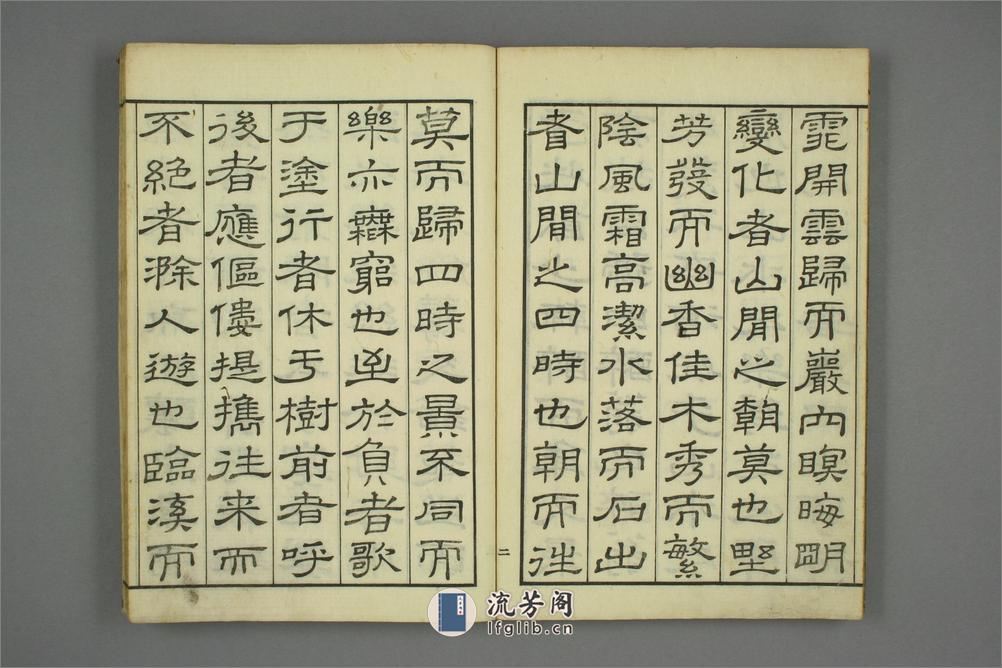 霏開雲歸而巖穴瞑晦眀
變化者山間之朝莫也野
芳發而幽香佳木秀而繁
陰風霜高潔水落而石出
者山間之四時也朝而往
二
莫而歸四時之景不同而
樂亦無窮也至於負者歌
于塗行者休于樹前者呼
後者應傴僂提攜往来而
不絶者滁人遊也臨溪而
流芳阁
lfglib.cn